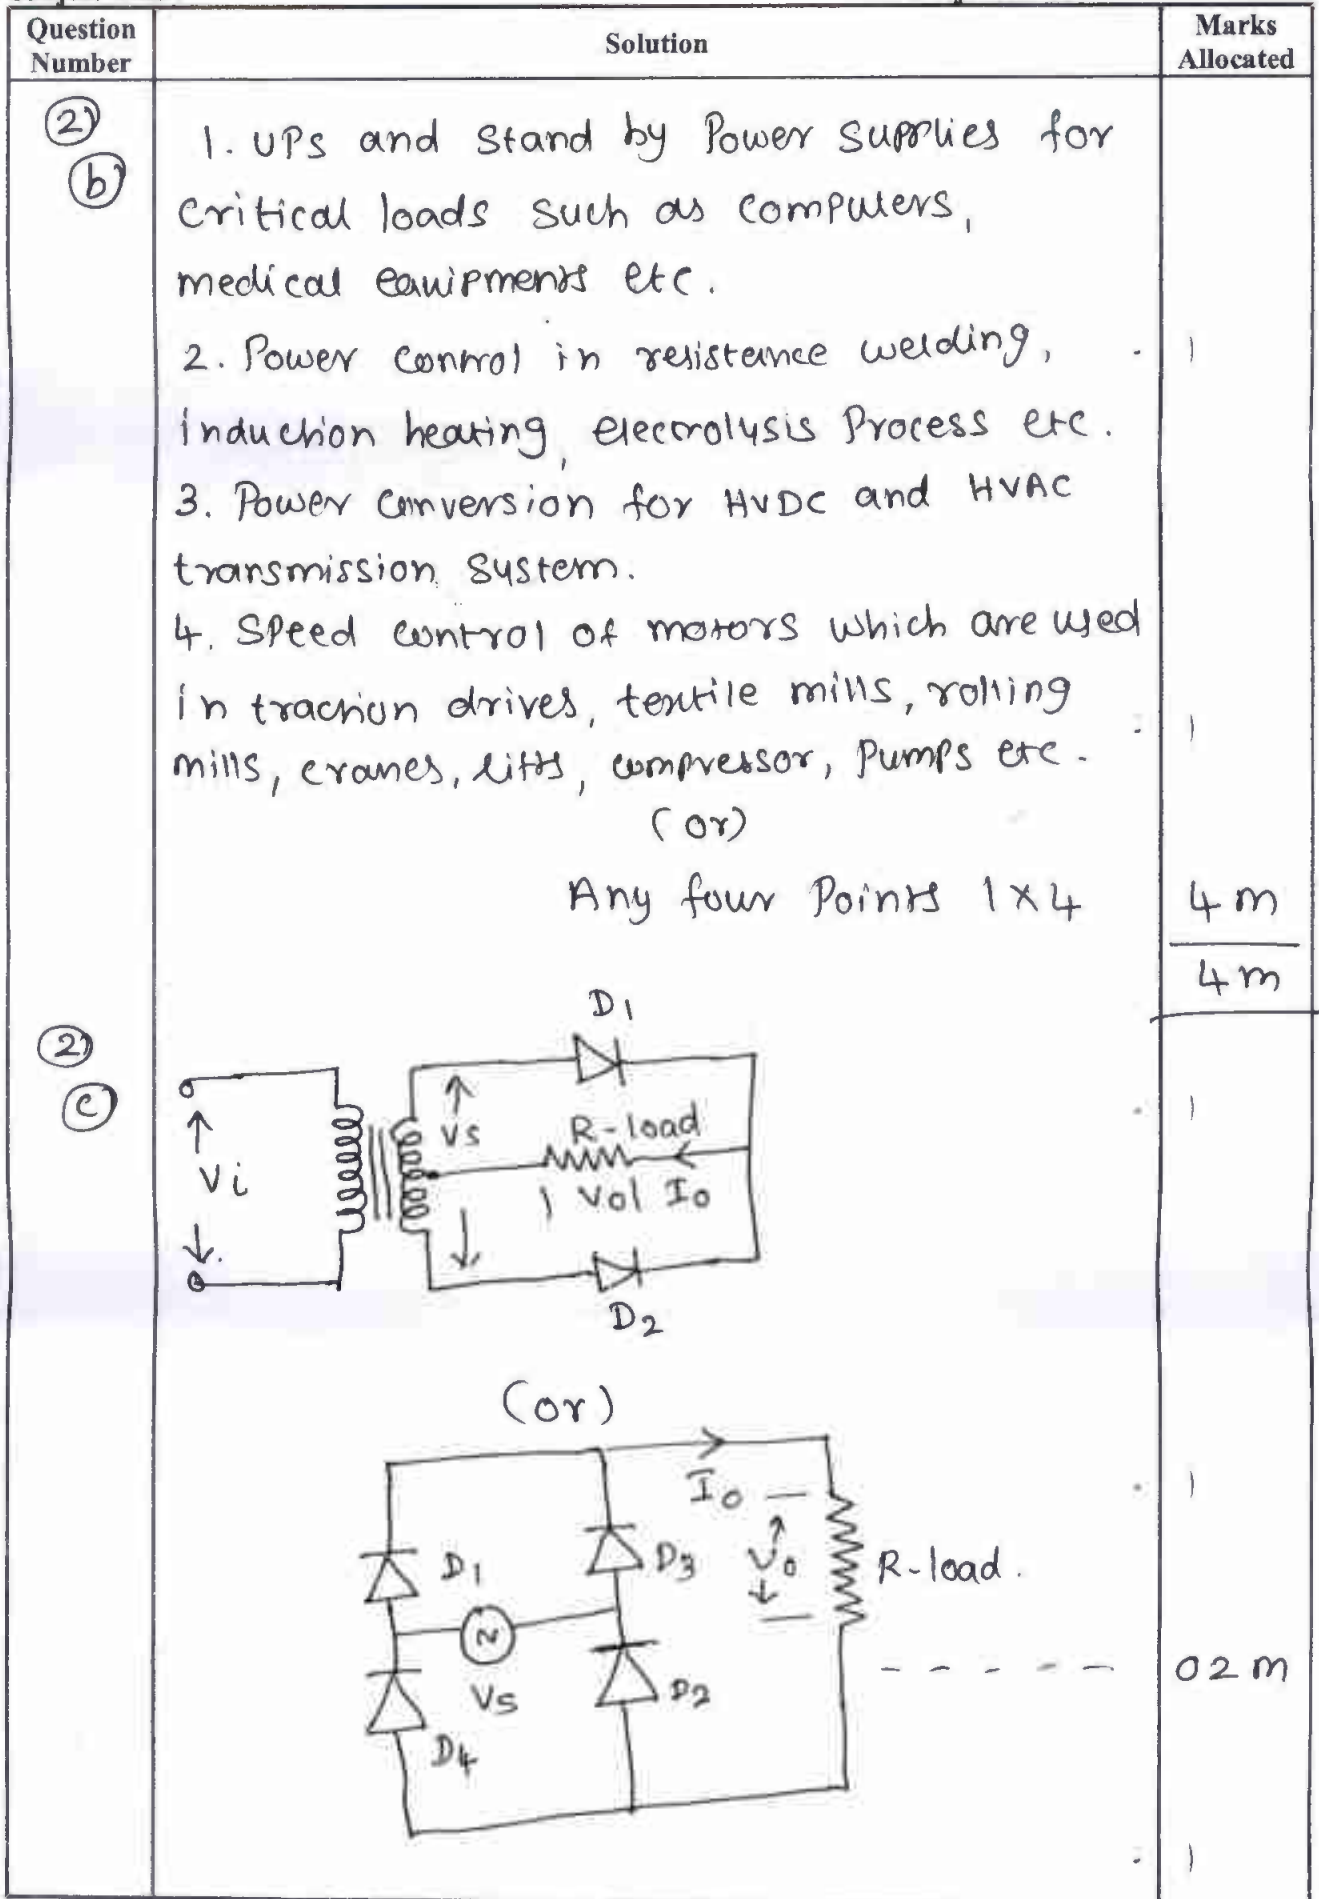 Question Number
Solution
Marks Allocated
2)
b)
1. UPS and Stand by Power Supplies for
critical loads such as computers,
medical equipments etc.
2. Power control in resistance welding,
induction heating, electrolysis Process etc.
3. Power Conversion for HVDC and HVAC
transmission system.
4. Speed control of motors which are used
in traction drives, textile mills, rolling
mills, cranes, lifts, compressor, Pumps etc.
(or)
Any four Points 1×4
4 m
4 m
2)
c)
D1
Vs
R-load
Vi
Vol Io
D2
(or)
Io
D1
D3
Vo
R-load.
N
Vs
D2
D4
02 m